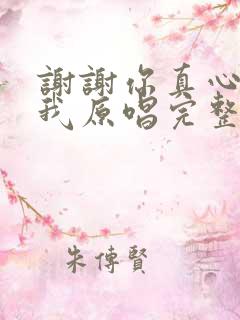 謝謝你真心
我原唱完整
朱傳賢